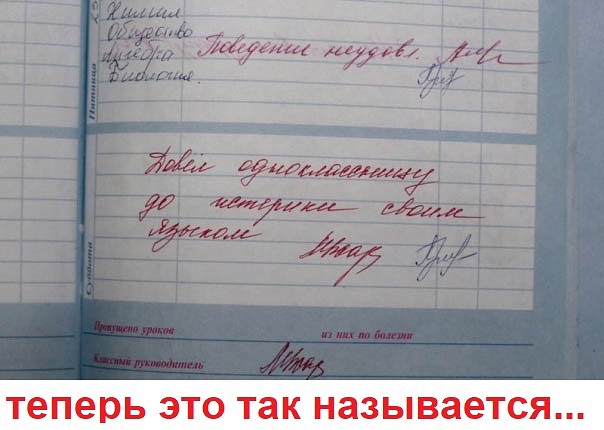 Химия
Общество
Алгебра Поведение неудовл.
Биология.
Пятница
Довёл одноклассницу
до истерики своим
языком
Суббота
Пропущено уроков из них по болезни
Классный руководитель
теперь это так называется...